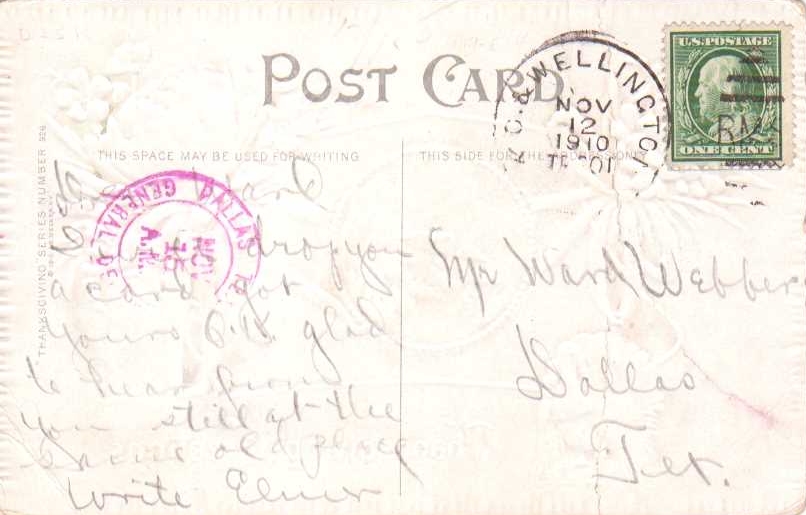 POST CARD
THIS SPACE MAY BE USED FOR WRITING
THIS SIDE FOR THE ADDRESS ONLY
THANKSGIVING SERIES NUMBER
U.S. POSTAGE
ONE CENT
WELLINGTON
NOV
12
1910
TR 01
DALLAS
GENERAL DEL
NOV
15
A.M.
drop you
a card got
yours O.K. glad
to hear from
you still at the
same old place
write Elmer
Mr Ward Webber
Dallas
Tex.